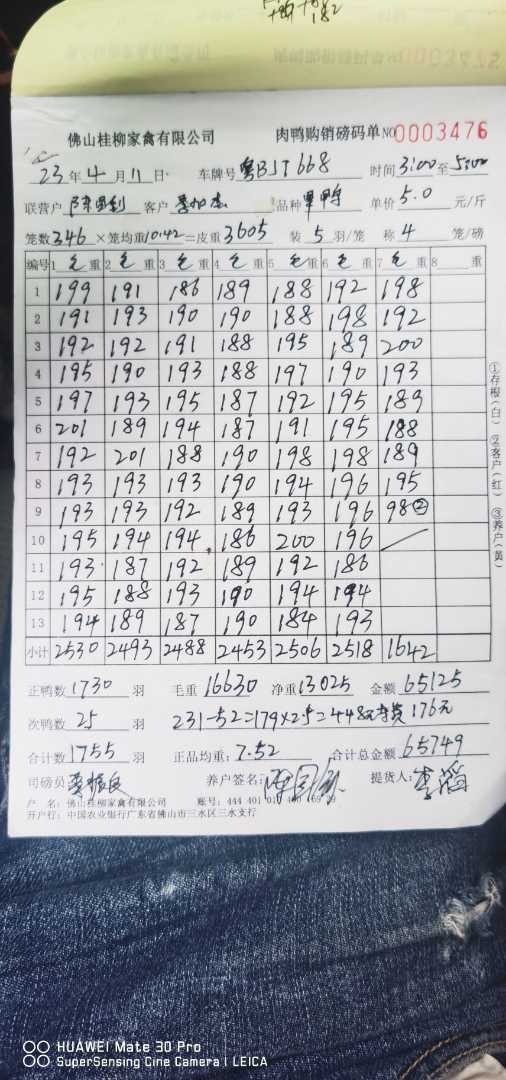 182
佛山桂柳家禽有限公司 肉鸭购销磅码单 NO 0003476
23 年 4 月 11 日 车牌号 粤BJT668 时间 3:00 至 5:00
联营户 客户 品种 单价 5.0 元/斤
笼数 346 ×笼均重 10.42 =皮重 3605 装 5 羽/笼 称 4 笼/磅
编号 1 毛 重 2 毛 重 3 毛 重 4 毛 重 5 毛 重 6 毛 重 7 毛 重 8 重
1 199 191 186 189 188 192 198
2 191 193 190 190 188 198 192
3 192 192 191 188 195 189 200
4 195 190 193 188 197 190 193
5 197 193 195 187 192 195 189
6 201 189 194 187 191 195 188
7 192 201 188 190 198 198 189
8 193 193 193 190 194 196 195
9 193 193 192 189 193 196 98②
10 195 194 194 186 200 196
11 193 187 192 189 192 186
12 195 188 193 190 194 194
13 194 189 187 190 184 193
小计 2530 2493 2488 2453 2506 2518 1642
正鸭数 1730 羽 毛重 16630 净重 13025 金额 65125
次鸭数 25 羽 231-52=179×2.5=448元 176元
合计数 1755 羽 正品均重: 7.52 合计总金额 65749
司磅员 养户签名: 提货人: 李滔
户 名: 佛山桂柳家禽有限公司 账号: 444 401 01
开户行: 中国农业银行广东省佛山市三水区三水支行
①存根(白) ②客户(红) ③养户(黄)
HUAWEI Mate 30 Pro
SuperSensing Cine Camera | LEICA